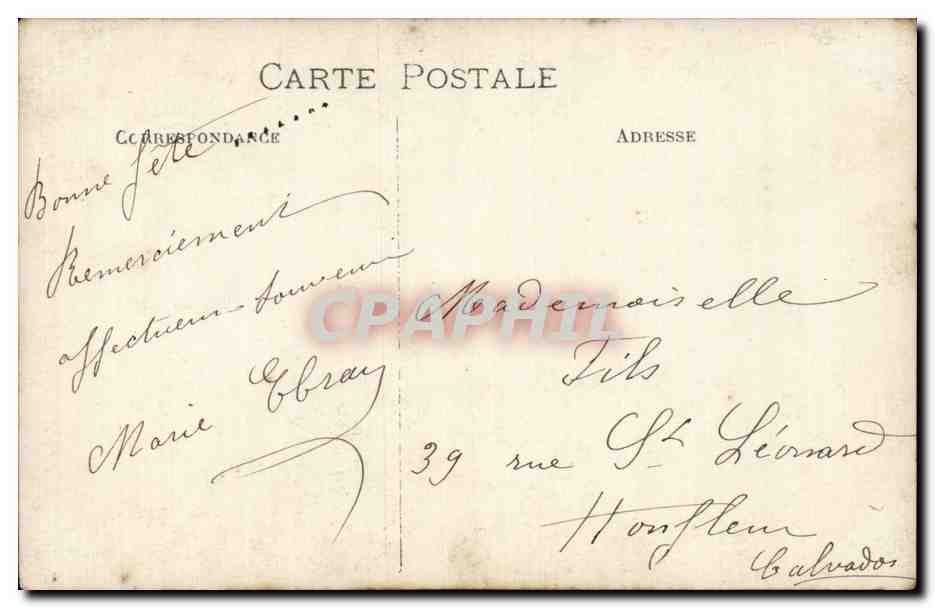 CARTE POSTALE
CORRESPONDANCE
ADRESSE
Bonne fête.......
Remerciement
affectueux souvenir
Marie Ebray
Mademoiselle
Fils
39 rue St Léonard
Honfleur
Calvados
CPAPHIL